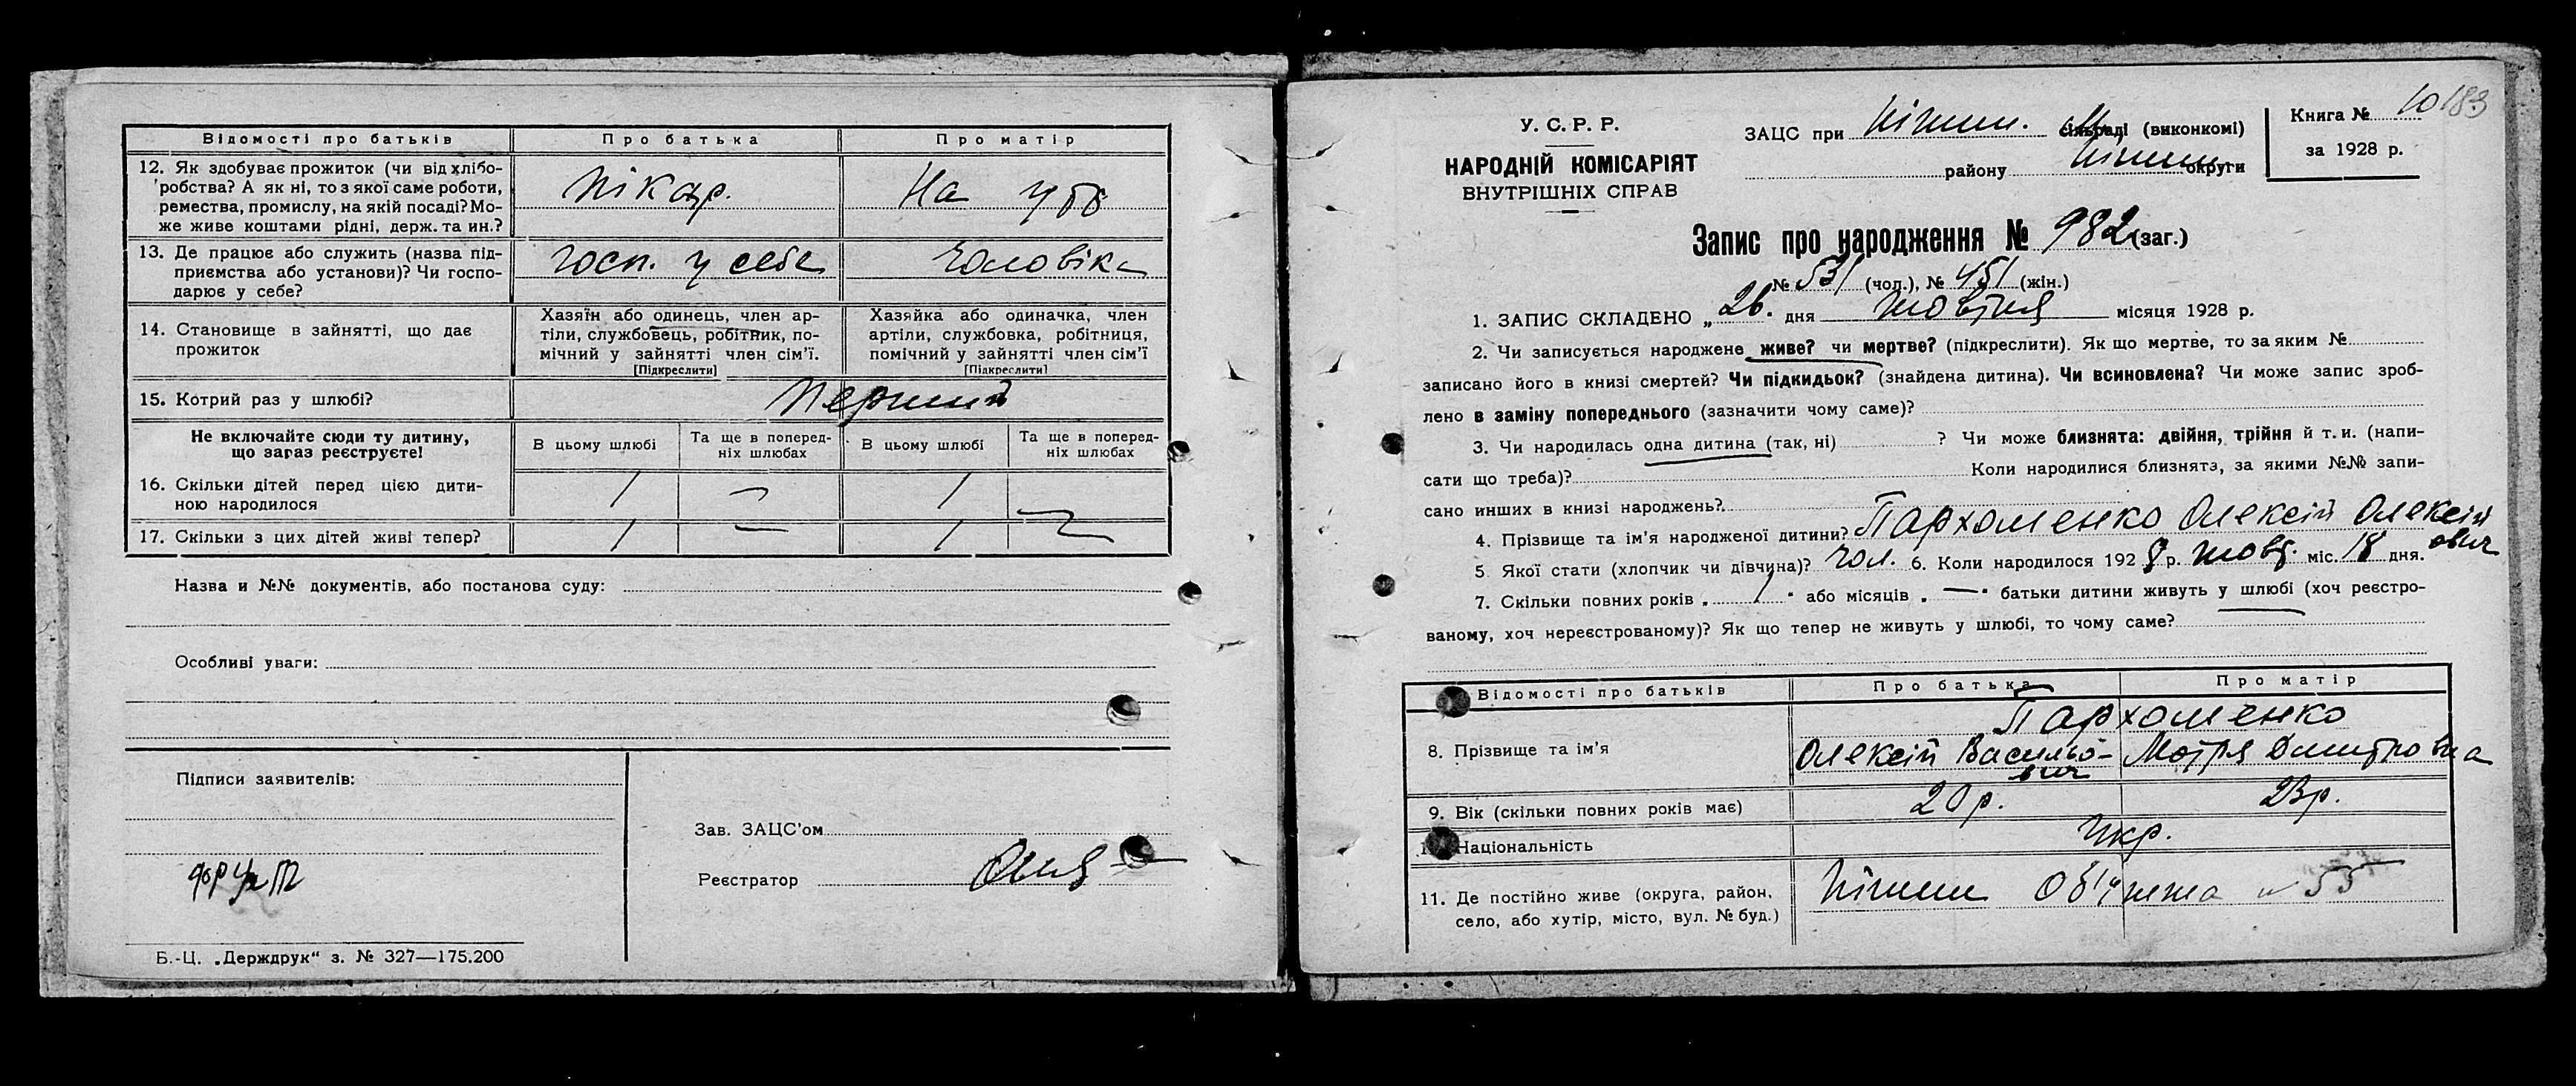 Відомості про батьків Про батька Про матір
12. Як здобуває прожиток (чи від хлібо-
робства? А як ні, то з якої саме роботи,
ремества, промислу, на якій посаді? Мо-
же живе коштами рідні, держ. та ин.?
Пікар. На утр
13. Де працює або служить (назва під-
приємства або установи)? Чи госпо-
дарює у себе?
госп. у себе чоловіка
14. Становище в зайнятті, що дає
прожиток
Хазяїн або одинець, член ар-
тіли, службовець, робітник, по-
мічний у зайнятті член сім'ї.
[Підкреслити]
Хазяйка або одиначка, член
артіли, службовка, робітниця,
помічний у зайнятті член сім'ї
[Підкреслити]
15. Котрий раз у шлюбі? Перший
Не включайте сюди ту дитину,
що зараз реєструєте!
В цьому шлюбі
Та ще в поперед-
ніх шлюбах
В цьому шлюбі
Та ще в поперед-
ніх шлюбах
16. Скільки дітей перед цією дити-
ною народилося
1 — 1 —
17. Скільки з цих дітей живі тепер? 1 — 1 —
Назва и №№ документів, або постанова суду:
Особливі уваги:
Підписи заявителів:
Зав. ЗАЦС'ом
Реєстратор
Б.-Ц. „Держдрук“ з. № 327—175.200
У. С. Р. Р.
НАРОДНІЙ КОМІСАРІЯТ
ВНУТРІШНІХ СПРАВ
ЗАЦС при Ніжин. сільраді (виконкомі)
району Ніжин. округи
Книга № 10
183
за 1928 р.
Запис про народження № 982 (заг.)
№ 531 (чол.), № 451 (жін.)
1. ЗАПИС СКЛАДЕНО „ 26. дня жовтня місяця 1928 р.
2. Чи записується народжене живе? чи мертве? (підкреслити). Як що мертве, то за яким №
записано його в книзі смертей? Чи підкидьок? (знайдена дитина). Чи всиновлена? Чи може запис зроб-
лено в заміну попереднього (зазначити чому саме)?
3. Чи народилась одна дитина (так, ні) ? Чи може близнята: двійня, трійня й т. и. (напи-
сати що треба)? Коли народилися близнята, за якими №№ запи-
сано инших в книзі народжень?
4. Прізвище та ім'я народженої дитини? Пархоменко Олексій Олексій
ович
5 Якої стати (хлопчик чи дівчина)? чол. 6. Коли народилося 1928 р. жовт. міс. 18 дня.
7. Скільки повних років „ 1 “ або місяців „ — “ батьки дитини живуть у шлюбі (хоч реєстро-
ваному, хоч нереєстрованому)? Як що тепер не живуть у шлюбі, то чому саме?
Відомості про батьків Про батька Про матір
Пархоменко
8. Прізвище та ім'я Олексій Васильо- Мотря Дмитровна
вич
9. Вік (скільки повних років має) 20 р. 23 р.
Національність Укр.
11. Де постійно живе (округа, район,
село, або хутір, місто, вул. № буд.)
Ніжин 55